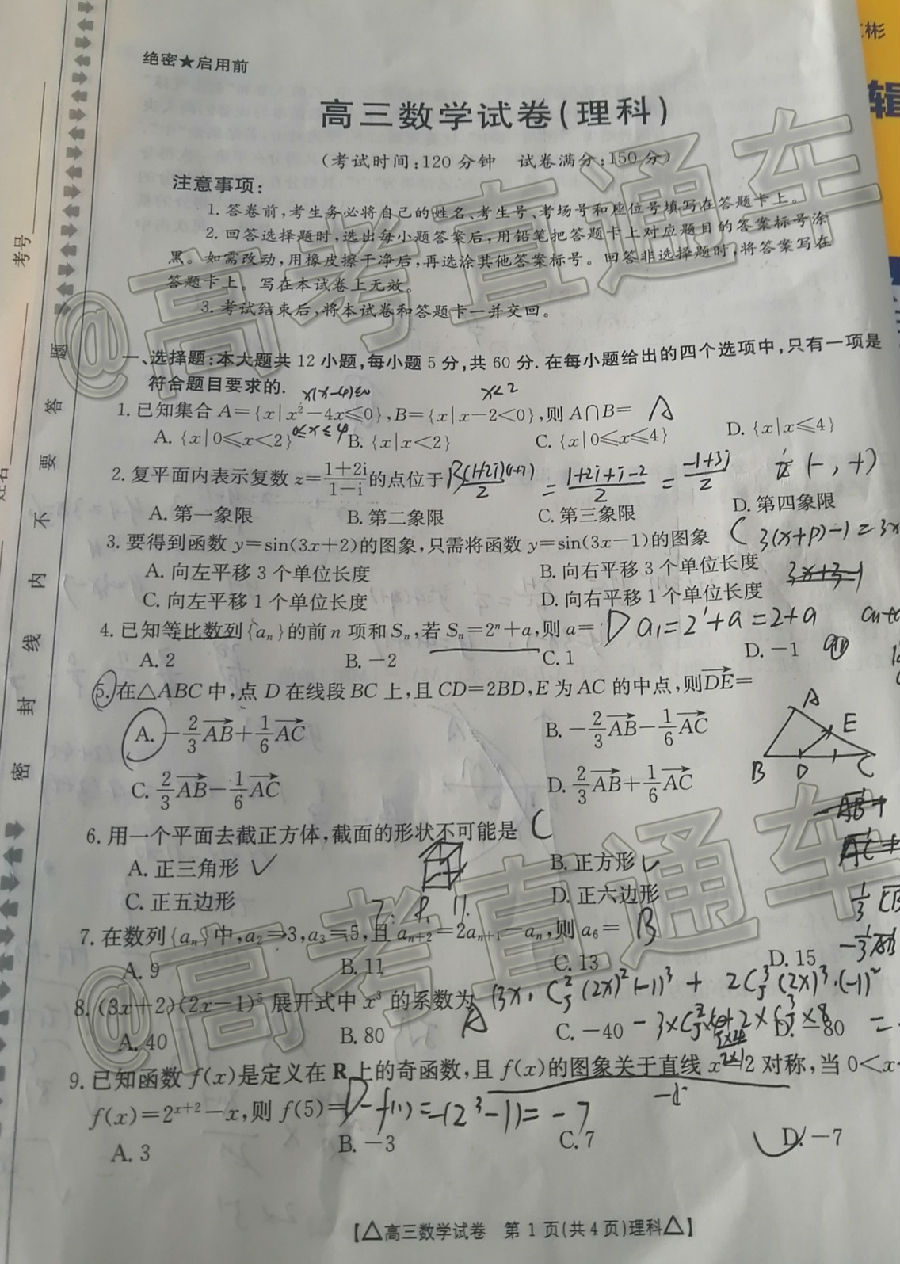 绝密★启用前
高三数学试卷(理科)
(考试时间:120分钟 试卷满分:150分)
注意事项:
1.答卷前,考生务必将自己的姓名、考生号、考场号和座位号填写在答题卡上。
2.回答选择题时,选出每小题答案后,用铅笔把答题卡上对应题目的答案标号涂
黑。如需改动,用橡皮擦干净后,再选涂其他答案标号。回答非选择题时,将答案写在
答题卡上。写在本试卷上无效。
3.考试结束后,将本试卷和答题卡一并交回。
一、选择题:本大题共12小题,每小题5分,共60分.在每小题给出的四个选项中,只有一项是
符合题目要求的.
x(x-4)≤0 x<2
1.已知集合A={x|x²-4x≤0},B={x|x-2<0},则A∩B= A
0≤x≤4
A.{x|0≤x<2} B.{x|x<2} C.{x|0≤x≤4} D.{x|x≤4}
2.复平面内表示复数z=\frac{1+2i}{1-i}的点位于 B = \frac{1+2i+i-2}{2} = \frac{-1+3i}{2} (-,+)
A.第一象限 B.第二象限 C.第三象限 D.第四象限
3.要得到函数y=sin(3x+2)的图象,只需将函数y=sin(3x-1)的图象 C 3(x+φ)-1=3x
A.向左平移3个单位长度 B.向右平移3个单位长度
C.向左平移1个单位长度 D.向右平移1个单位长度
4.已知等比数列{aₙ}的前n项和Sₙ,若Sₙ=2ⁿ+a,则a= D a₁=2¹+a=2+a
A.2 B.-2 C.1 D.-1
5.在△ABC中,点D在线段BC上,且CD=2BD,E为AC的中点,则\overrightarrow{DE}=
A.-\frac{2}{3}\overrightarrow{AB}+\frac{1}{6}\overrightarrow{AC} B.-\frac{2}{3}\overrightarrow{AB}-\frac{1}{6}\overrightarrow{AC}
C.\frac{2}{3}\overrightarrow{AB}-\frac{1}{6}\overrightarrow{AC} D.\frac{2}{3}\overrightarrow{AB}+\frac{1}{6}\overrightarrow{AC}
A E B D C
6.用一个平面去截正方体,截面的形状不可能是 C
A.正三角形 ✓ B.正方形 ✓
C.正五边形 D.正六边形
7. 9. 11.
7.在数列{aₙ}中,a₂=3,a₃=5,且aₙ₊₂=2aₙ₊₁-aₙ,则a₆= B
A.9 B.11 C.13 D.15
8.(3x+2)(2x-1)⁵展开式中x³的系数为 A
A.40 B.80 C.-40 D.-80
9.已知函数f(x)是定义在R上的奇函数,且f(x)的图象关于直线x=2对称,当0<x
f(x)=2ˣ⁺²-x,则f(5)= D -f(1)=-(2³-1)=-7
A.3 B.-3 C.7 D.-7
【△高三数学试卷 第1页(共4页)理科△】
考号
密 封 线 内 不 要 答 题
@高考直通车
@高考直通车
彬
辑